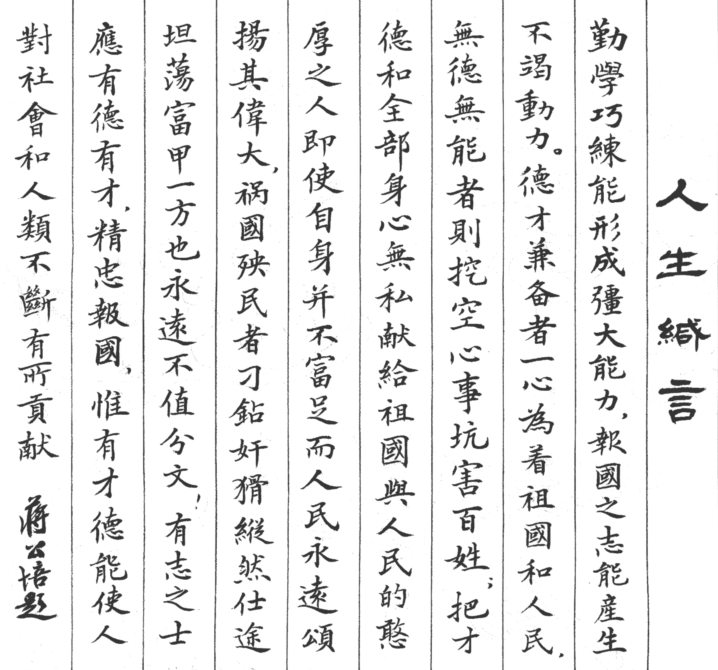 人生緘言
勤學巧練能形成彊大能力，報國之志能產生
不竭動力。德才兼备者一心為着祖國和人民，
無德無能者則挖空心事坑害百姓；把才
德和全部身心無私献給祖國與人民的憨
厚之人即使自身并不富足而人民永遠頌
揚其偉大，祸國殃民者刁鉆奸猾縱然仕途
坦荡富甲一方也永遠不值分文，有志之士
應有德有才，精忠報國，惟有才德能使人
對社會和人類不斷有所貢献 蒋公培題